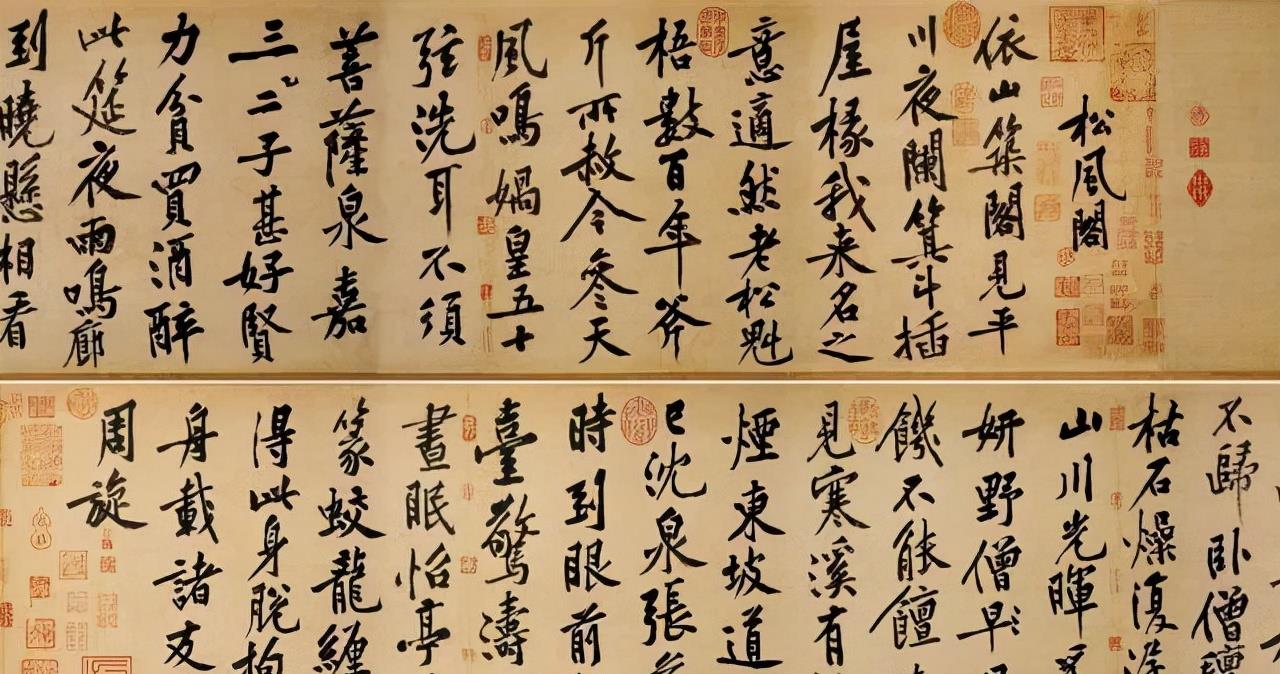 松風閣
依山築閣見平
川夜闌箕斗插
屋椽我来名之
意適然老松魁
梧數百年斧
斤所赦今參天
風鳴媧皇五十
弦洗耳不須
菩薩泉嘉
三二子甚好賢
力貧買酒醉
此筵夜雨鳴廊
到曉懸相看
不歸卧僧氊
枯石燥復
山川光暉
妍野僧早
饑不能饘
見寒溪有
煙東坡道
已沈泉張
時到眼前
臺驚濤
晝眠怡亭
篆蛟龍纏
得此身脫拘
舟載諸友
周旋